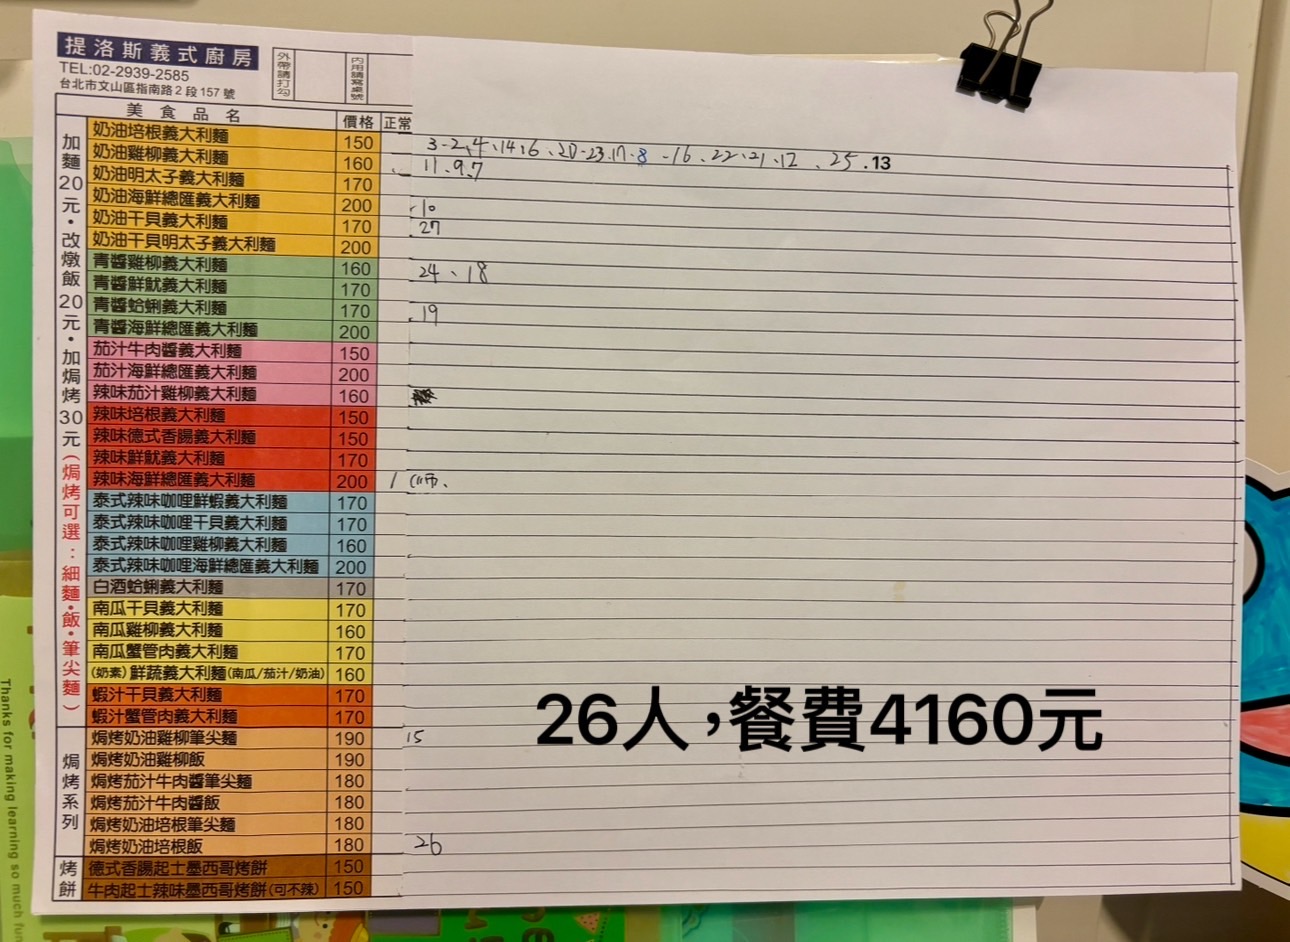 提洛斯義式廚房
TEL:02-2939-2585
台北市文山區指南路2段157號
外帶請打勾
內用請寫桌號
美食品名 價格 正常
加麵20元·改燉飯20元·加焗烤30元(焗烤可選:細麵·飯·筆尖麵)
奶油培根義大利麵 150 3-2、4、14、6、20-23、17、8-16、22、21、12、25.13
奶油雞柳義大利麵 160 11、9、7
奶油明太子義大利麵 170
奶油海鮮總匯義大利麵 200 10
奶油干貝義大利麵 170 27
奶油干貝明太子義大利麵 200
青醬雞柳義大利麵 160 24、18
青醬鮮魷義大利麵 170
青醬蛤蜊義大利麵 170 19
青醬海鮮總匯義大利麵 200
茄汁牛肉醬義大利麵 150
茄汁海鮮總匯義大利麵 200
辣味茄汁雞柳義大利麵 160
辣味培根義大利麵 150
辣味德式香腸義大利麵 150
辣味鮮魷義大利麵 170
辣味海鮮總匯義大利麵 200 1 (師、
泰式辣味咖哩鮮蝦義大利麵 170
泰式辣味咖哩干貝義大利麵 170
泰式辣味咖哩雞柳義大利麵 160
泰式辣味咖哩海鮮總匯義大利麵 200
白酒蛤蜊義大利麵 170
南瓜干貝義大利麵 170
南瓜雞柳義大利麵 160
南瓜蟹管肉義大利麵 170
(奶素)鮮蔬義大利麵(南瓜/茄汁/奶油) 160
蝦汁干貝義大利麵 170
蝦汁蟹管肉義大利麵 170
焗烤系列
焗烤奶油雞柳筆尖麵 190 15
焗烤奶油雞柳飯 190
焗烤茄汁牛肉醬筆尖麵 180
焗烤茄汁牛肉醬飯 180
焗烤奶油培根筆尖麵 180
焗烤奶油培根飯 180 26
烤餅
德式香腸起士墨西哥烤餅 150
牛肉起士辣味墨西哥烤餅(可不辣) 150
26人,餐費4160元
Thanks for making learning so much fun